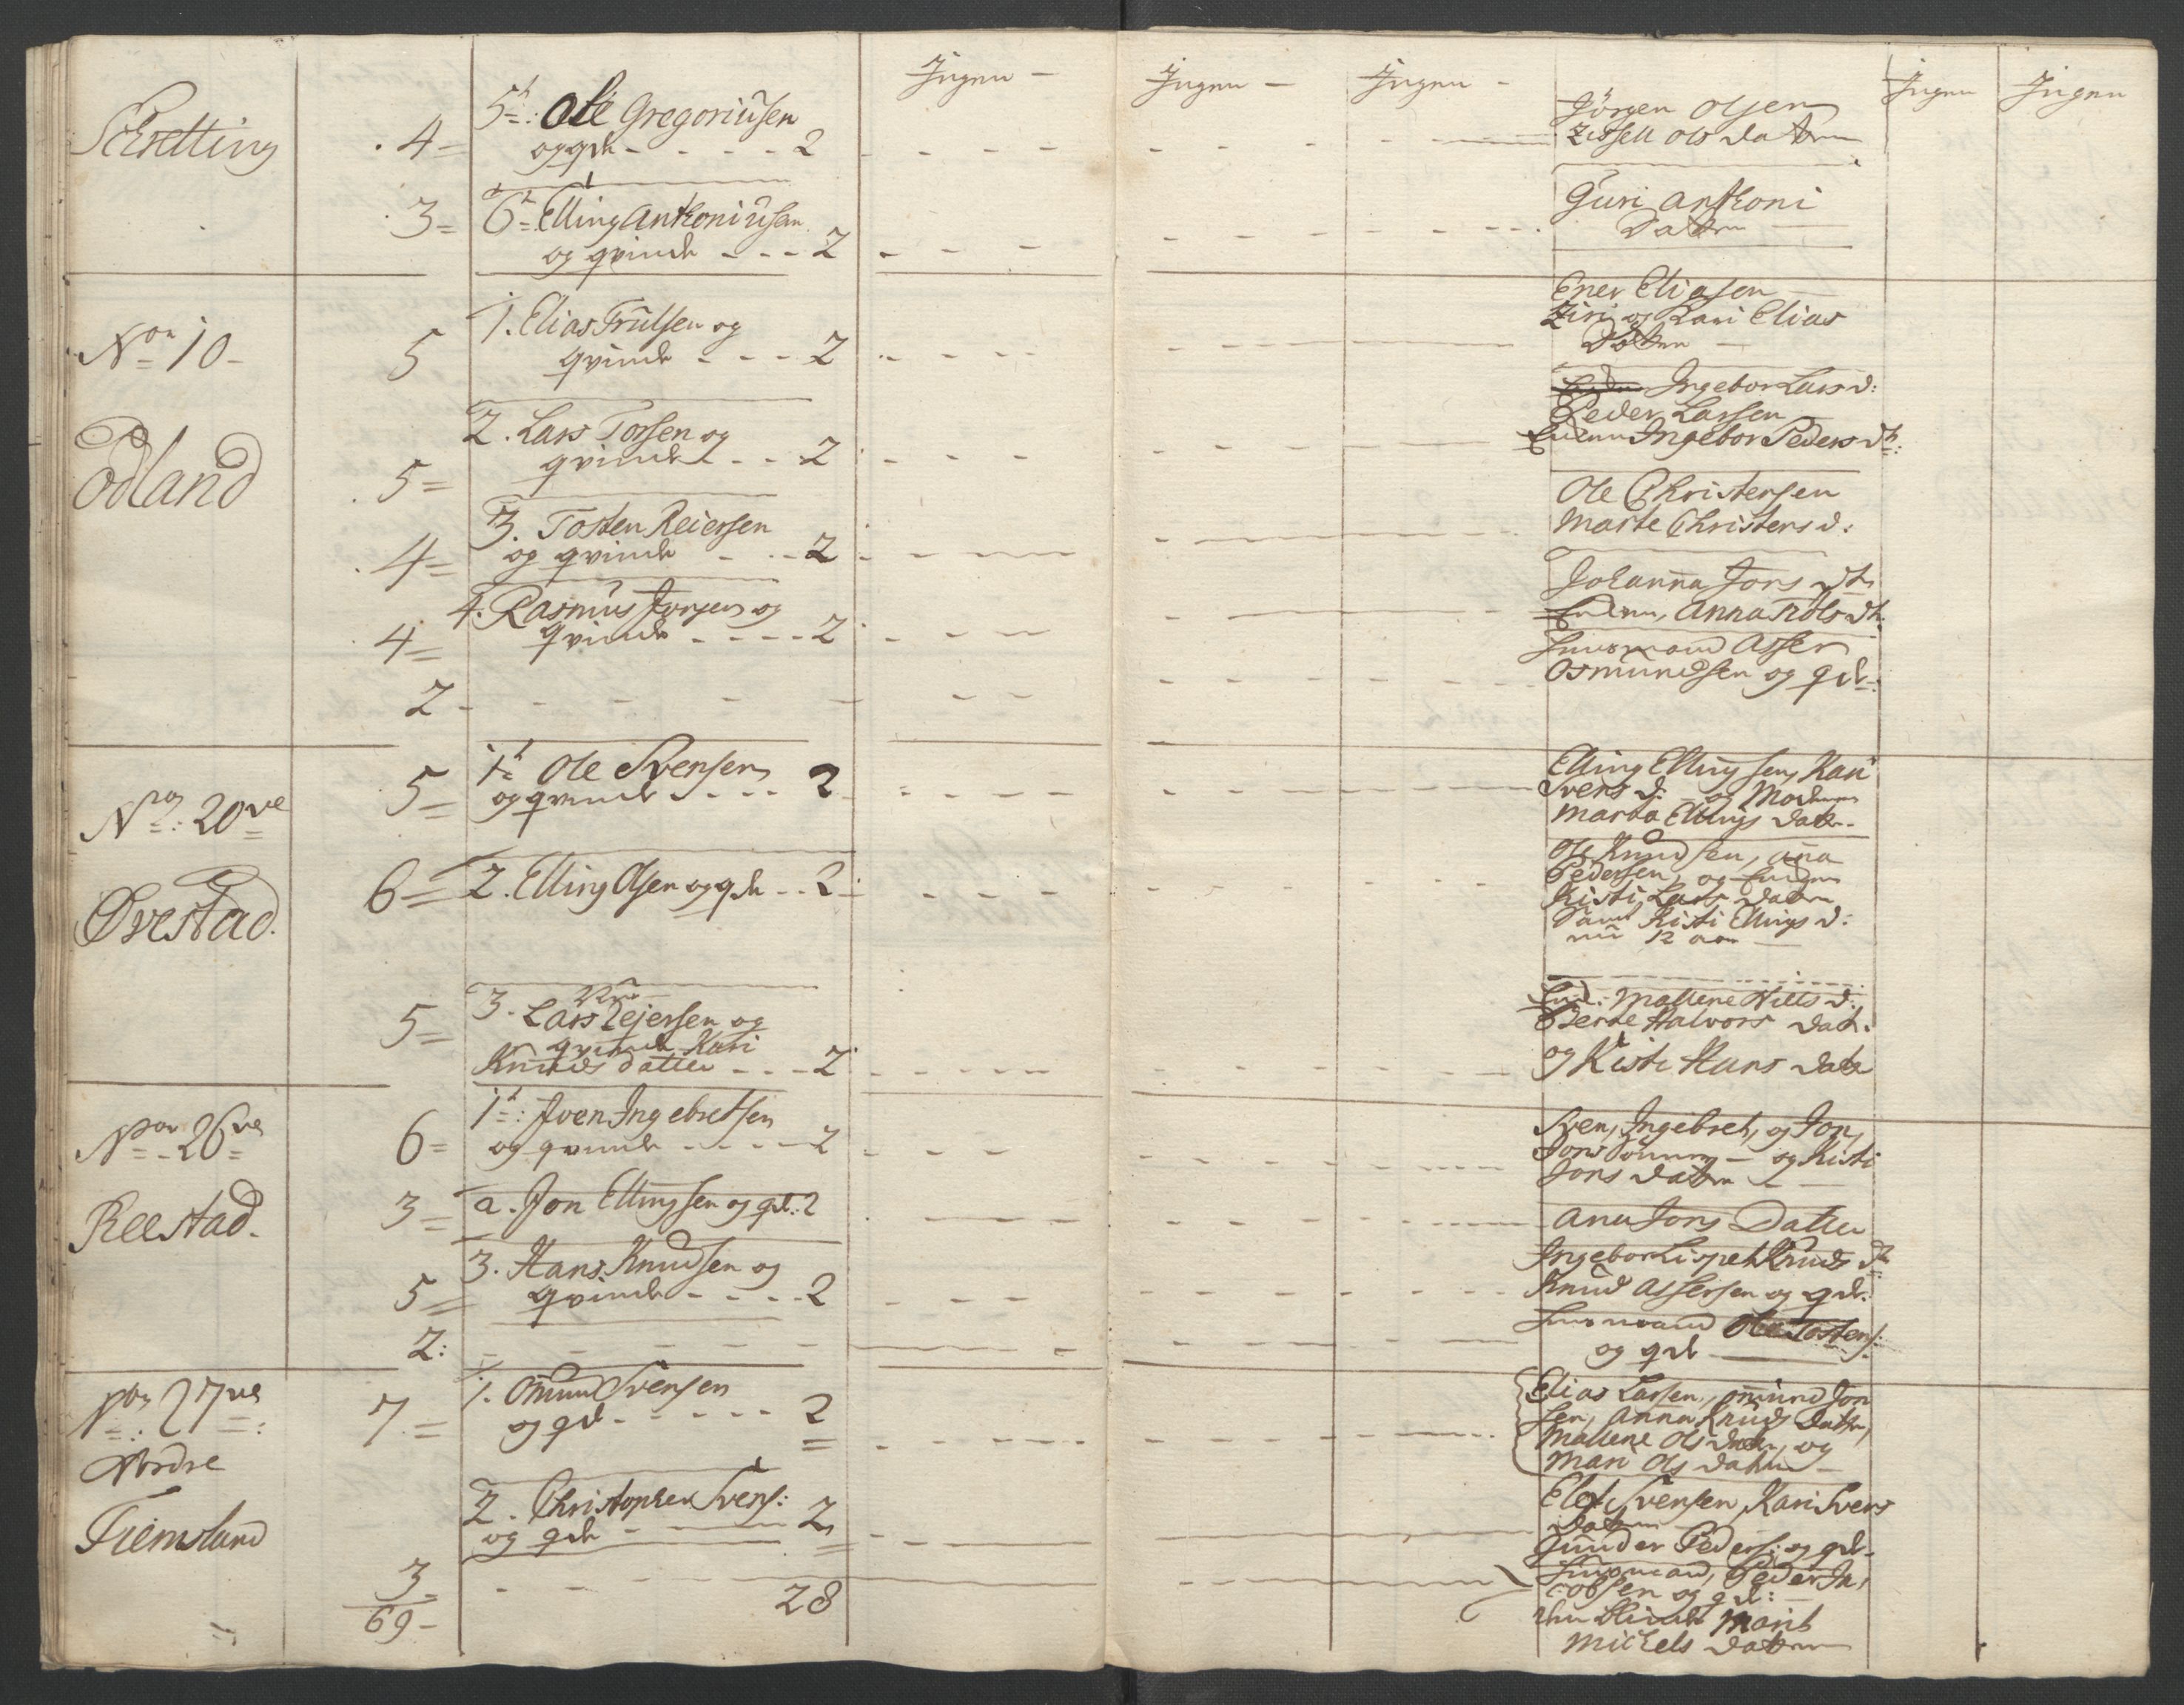 Ingen - Ingen - Ingen - Ingen Ingen
Schretting
4 =
5te: Ole Gregoriusen
og qde - - - - 2
Jörgen Olsen
Zissell Ols Datter
3 =
6te Elling Anthoniusen
og qvinde - - - 2
Guri Anthoni
Datter
No 10 -
Ödland
5
1. Elias Trulsen og
qvinde - - - 2
Ener Eliasen
Ziri og Kari Elias
Datter
5 =
2. Lars Torsen og
qvinde - - - 2
Ingebor Lars d:
Peder Larsen
Enken Ingebor Peders dtr:
4 =
3. Tosten Reiersen
og qvinde - - - 2
Ole Christensen
Marte Christens d:
4 =
4. Rasmus Jonsen og
qvinde - - - - 2
Johanna Jons dtr
Enken, Anna Nils dtr
2 -
Huusmand Asser
Osmundsen og qde:
No: 20ve
Ørestad.
5 =
1te Ole Svensen
og qvinde - - - 2
Elling Ellingsen, Kari
Svens d: og Moderen
Marta Ellings datter
6 =
2. Elling Olsen og qde - - 2
Ole Knudsen, Ana
Pedersen, og Enken
Kisti Lars Datter
Samt Kisti Ellings d:
nu 12 aar
5 =
3. Lars Rejersen og
qvinde Kari
Knuds datter - - - 2
Enk: Mallene Nills d:
Berte Halvors datr.
og Kisti Hans datter
No - 26ve
Reestad.
6 =
1te: Jon Ingebretsen
og qvinde - - - - 2
Sven, Ingebret, og Jon,
Jons Sönner - og Kisti
Jons datter
3 =
2. Jon Ellingsen og qde: 2
Ana Jons Datter
5 =
3. Hans Knudsen og
qvinde - - - - 2
Ingebor Lispet Knuds dtr
Knud Assersen og qde:
2:
Huusmand Ole Tostens:
og qde
No: 27ve
Nordre
Tiemsland
7 =
1. Omund Svensen
og qde - - - - - 2
Elias Larsen, Omund Jon
sen, Anna Knuds Datter,
Mallene Ols datter, og
Mari Ols datter
2. Christopher Svens:
og qde - 2
Elef Svensen, Kari Svens
Datter
Gunder Peders: og qde -
3 =
Huusmand, Peder Ja
cobsen og qde:
Marit
Michels datter
69 -
28